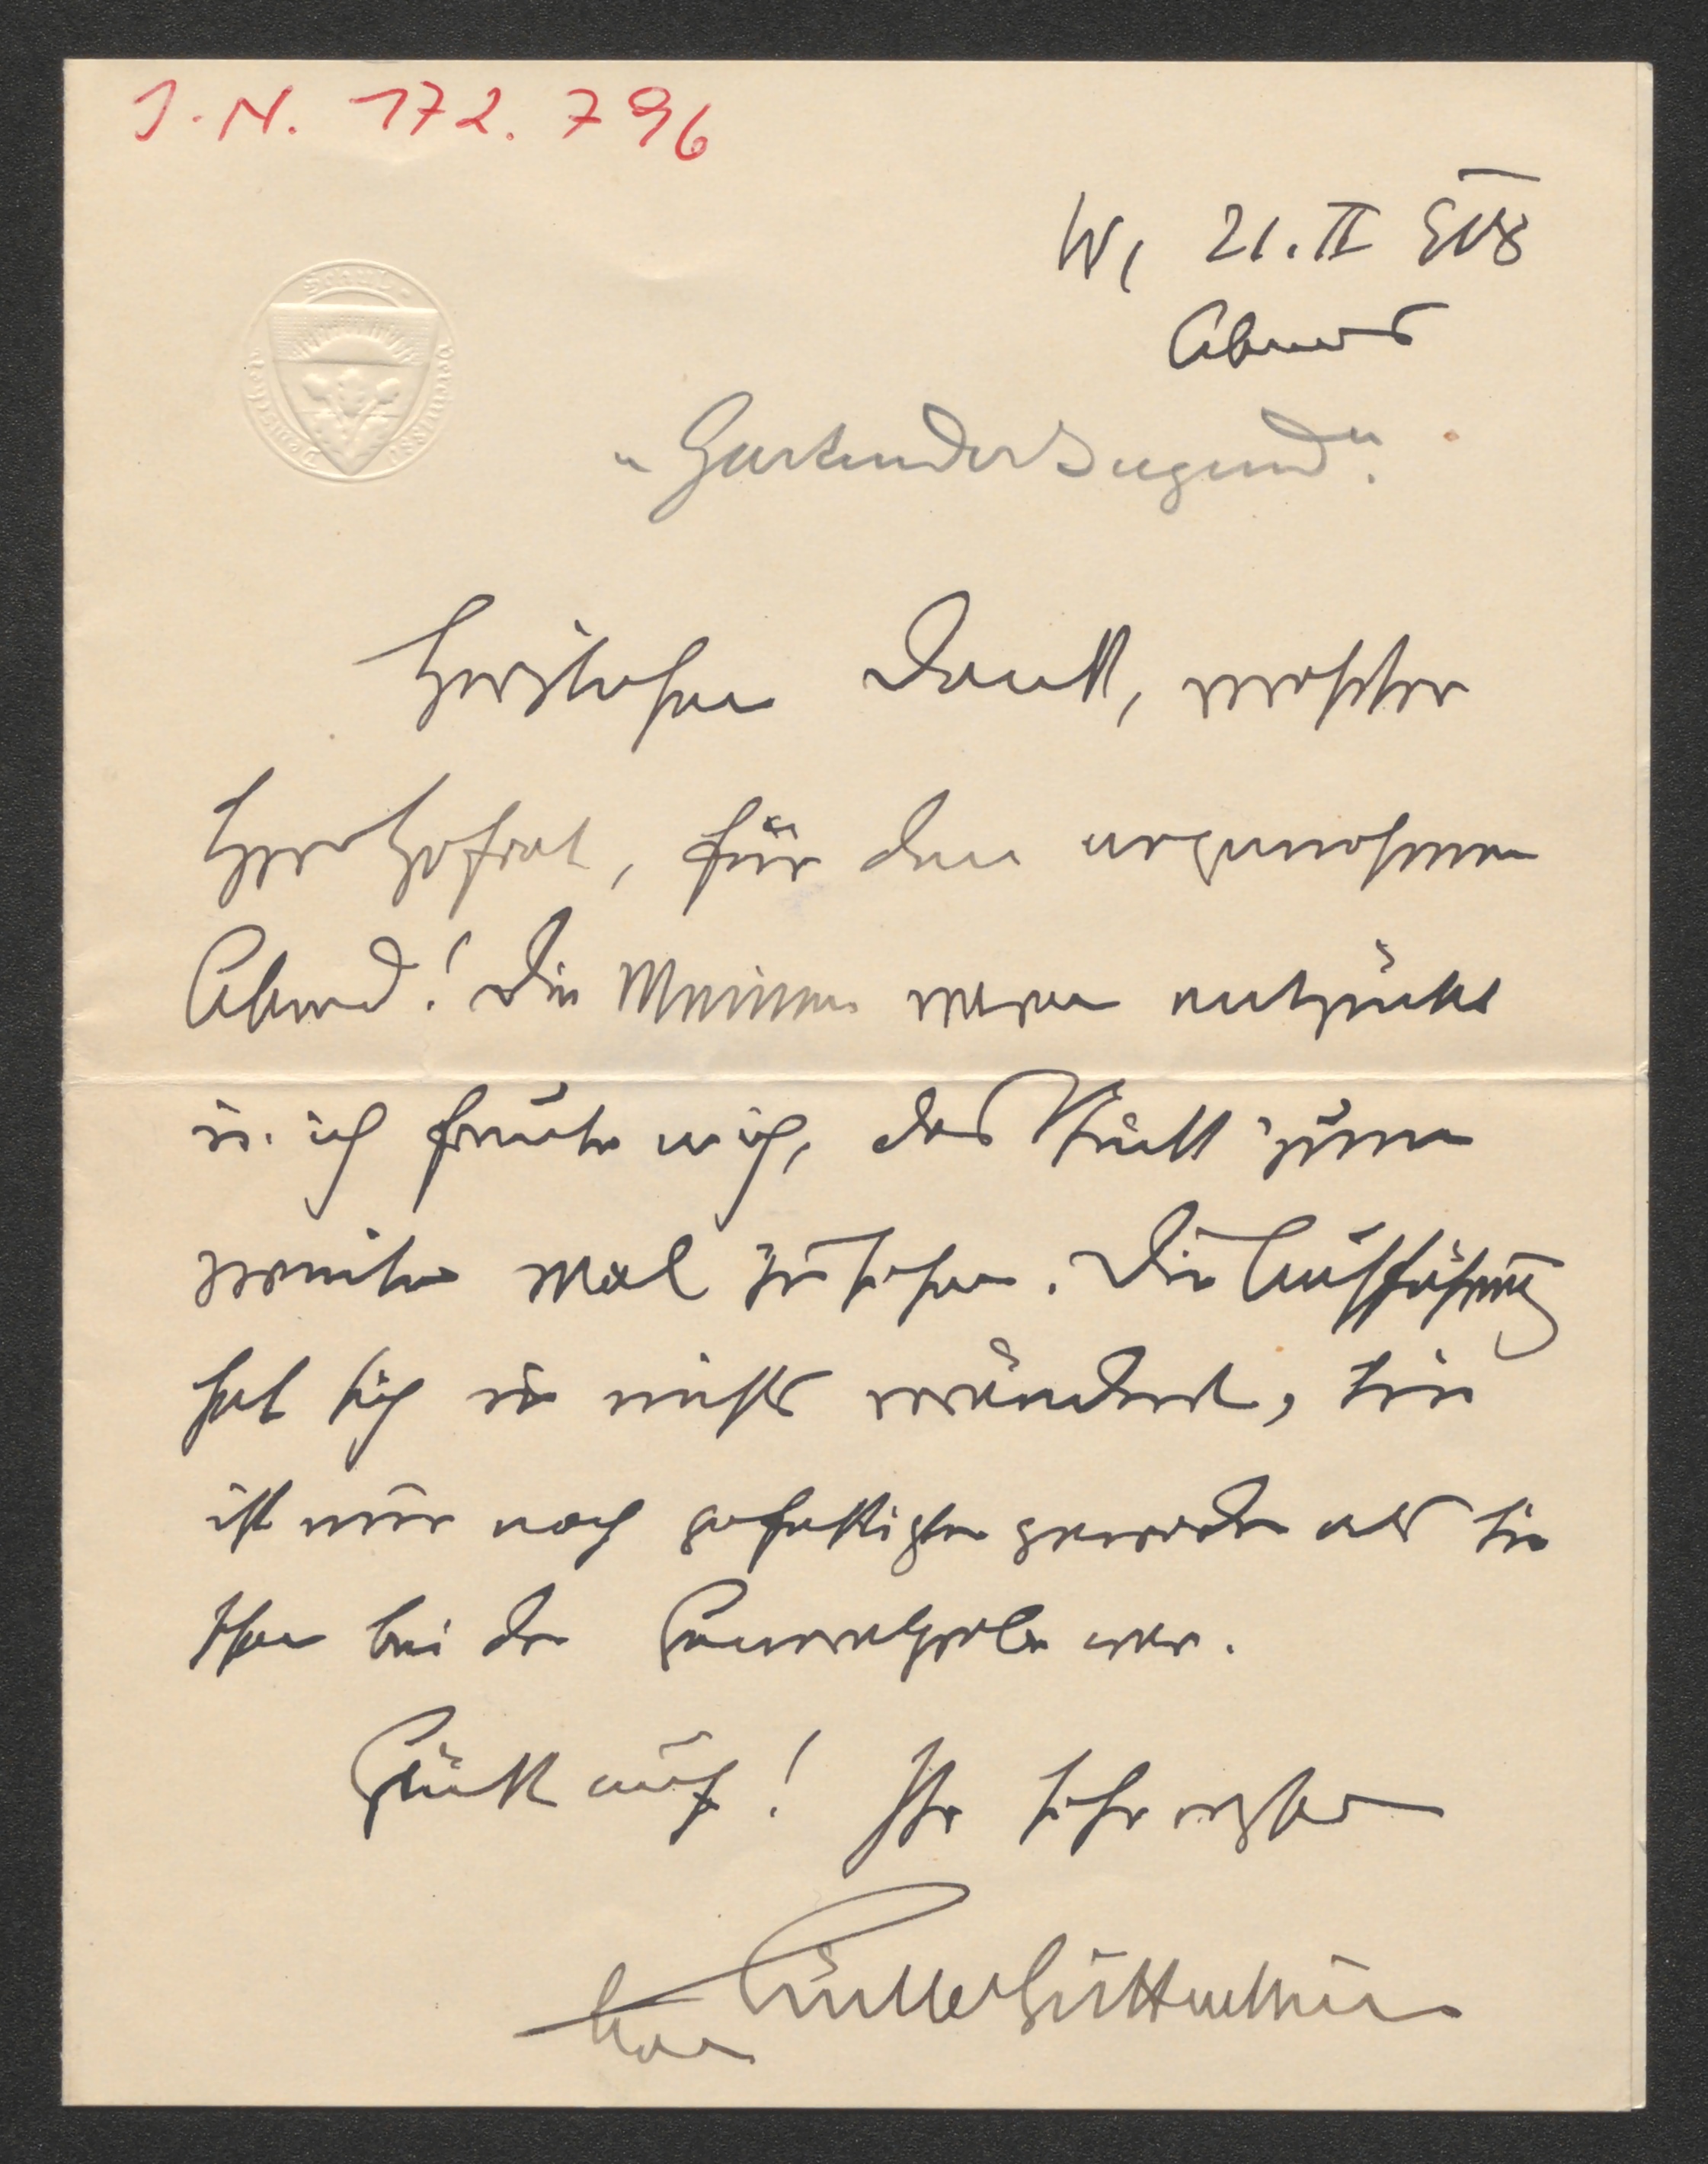 J. N. 172.796
W, 21. II 908
Abends
"Garten der Jugend".
Herzlichen Dank, verehrter
Herr Hofrat, für den angenehmen
Abend! Die Meinen waren entzückt
u. ich freute mich, das Stück zum
zweiten Mal zu sehen. Die Aufführung
hat sich in nichts verändert, sie
ist nur noch gefestigter geworden als sie
schon bei der Generalprobe war.
Glück auf! Ihr sehr ergebener